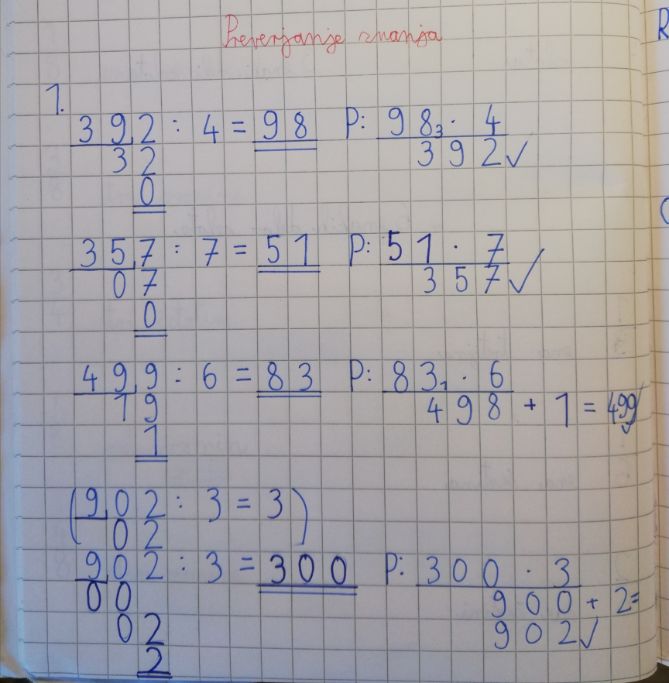 Preverjanje znanja
R
1.
392 : 4 = 98 P: 98₃ · 4
32 392 ✓
0
357 : 7 = 51 P: 51 · 7
07 357 ✓
0
499 : 6 = 83 P: 83₁ · 6
19 498 + 1 = 499 ✓
1
(902 : 3 = 3)
02
902 : 3 = 300 P: 300 · 3
00 900 + 2 =
02 902 ✓
2